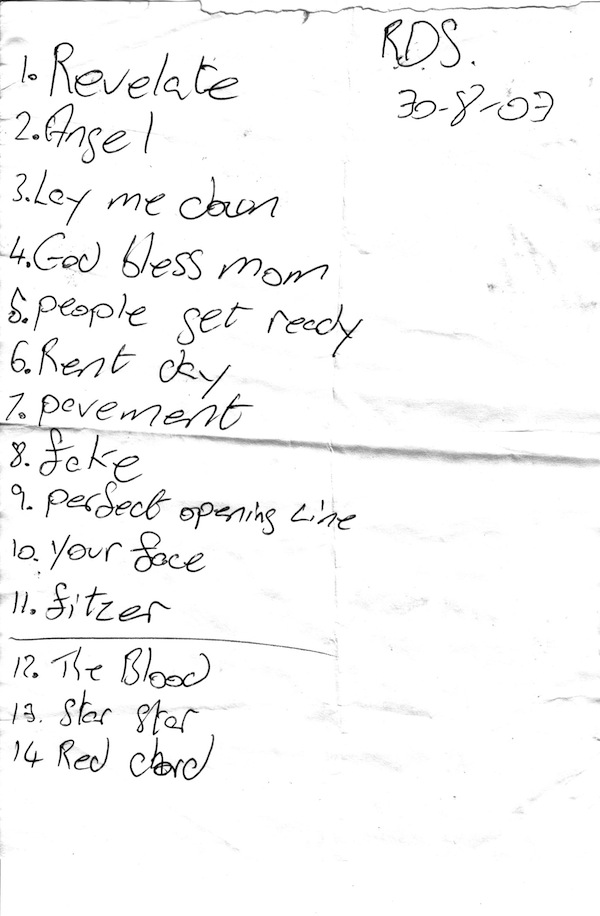 RDS.
30-8-03
1. Revelate
2. Angel
3. Lay me down
4. God bless mom
5. people get ready
6. Rent day
7. pavement
8. fake
9. perfect opening Line
10. your face
11. fitzer
12. The Blood
13. Star Star
14 Red chord